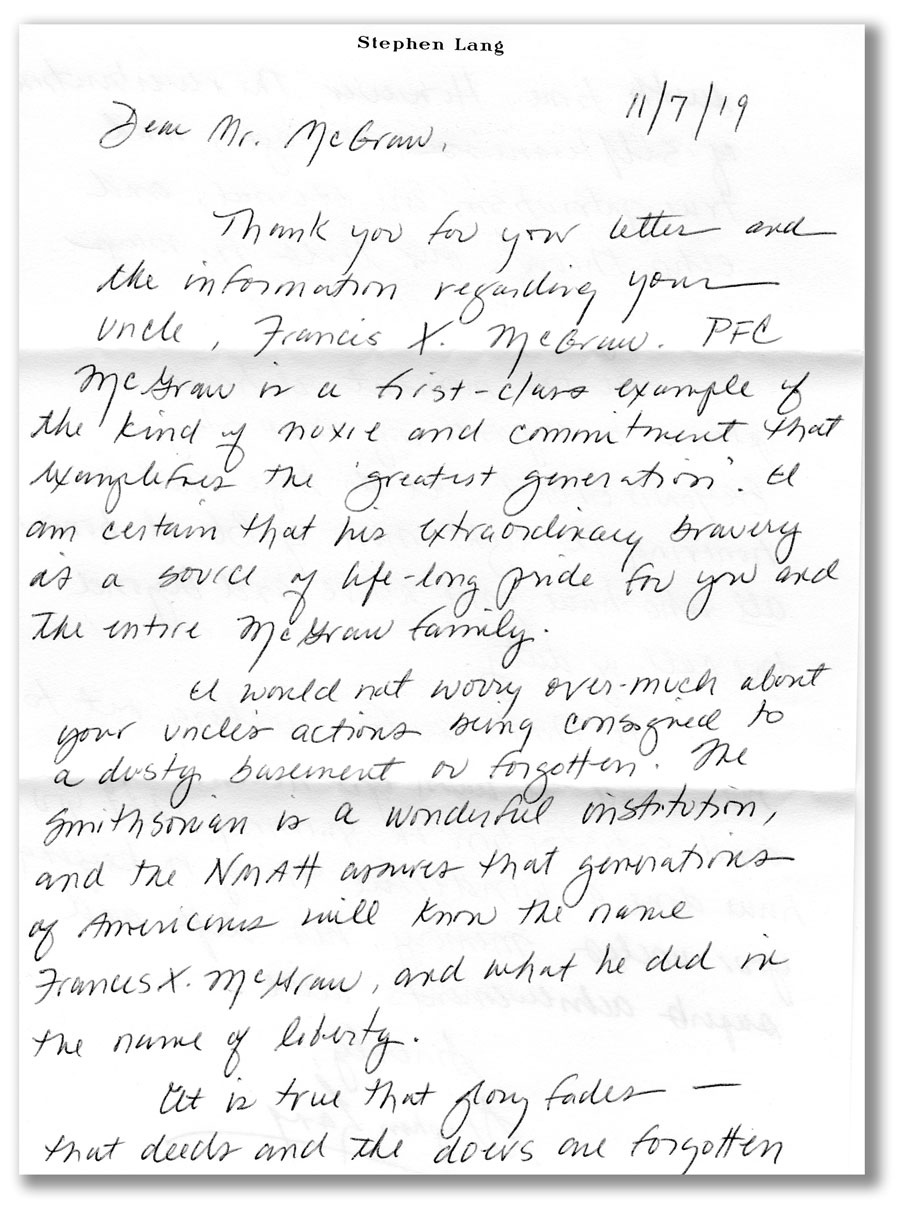 Stephen Lang
11/7/19
Dear Mr. McGraw,
Thank you for your letter and
the information regarding your
uncle, Francis X. McGraw. PFC
McGraw is a first-class example of
the kind of moxie and commitment that
examplifies the 'greatest generation'. I
am certain that his extraordinary bravery
is a source of life-long pride for you and
the entire McGraw family.
I would not worry over-much about
your uncle's actions being consigned to
a dusty basement or forgotten. The
Smithsonian is a wonderful institution,
and the NMAH assures that generations
of Americans will know the name
Francis X. McGraw, and what he did in
the name of liberty.
It is true that glory fades —
that deeds and the doers are forgotten